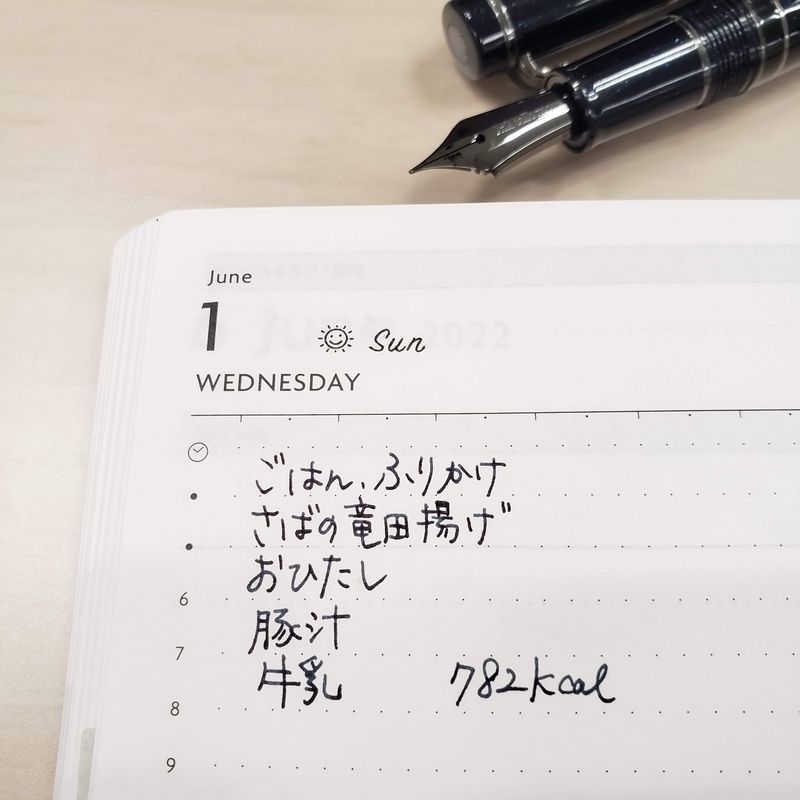 June
1 Sun
WEDNESDAY
ごはん、ふりかけ
さばの竜田揚げ
おひたし
6
豚汁
7
牛乳 782kcal
8
9